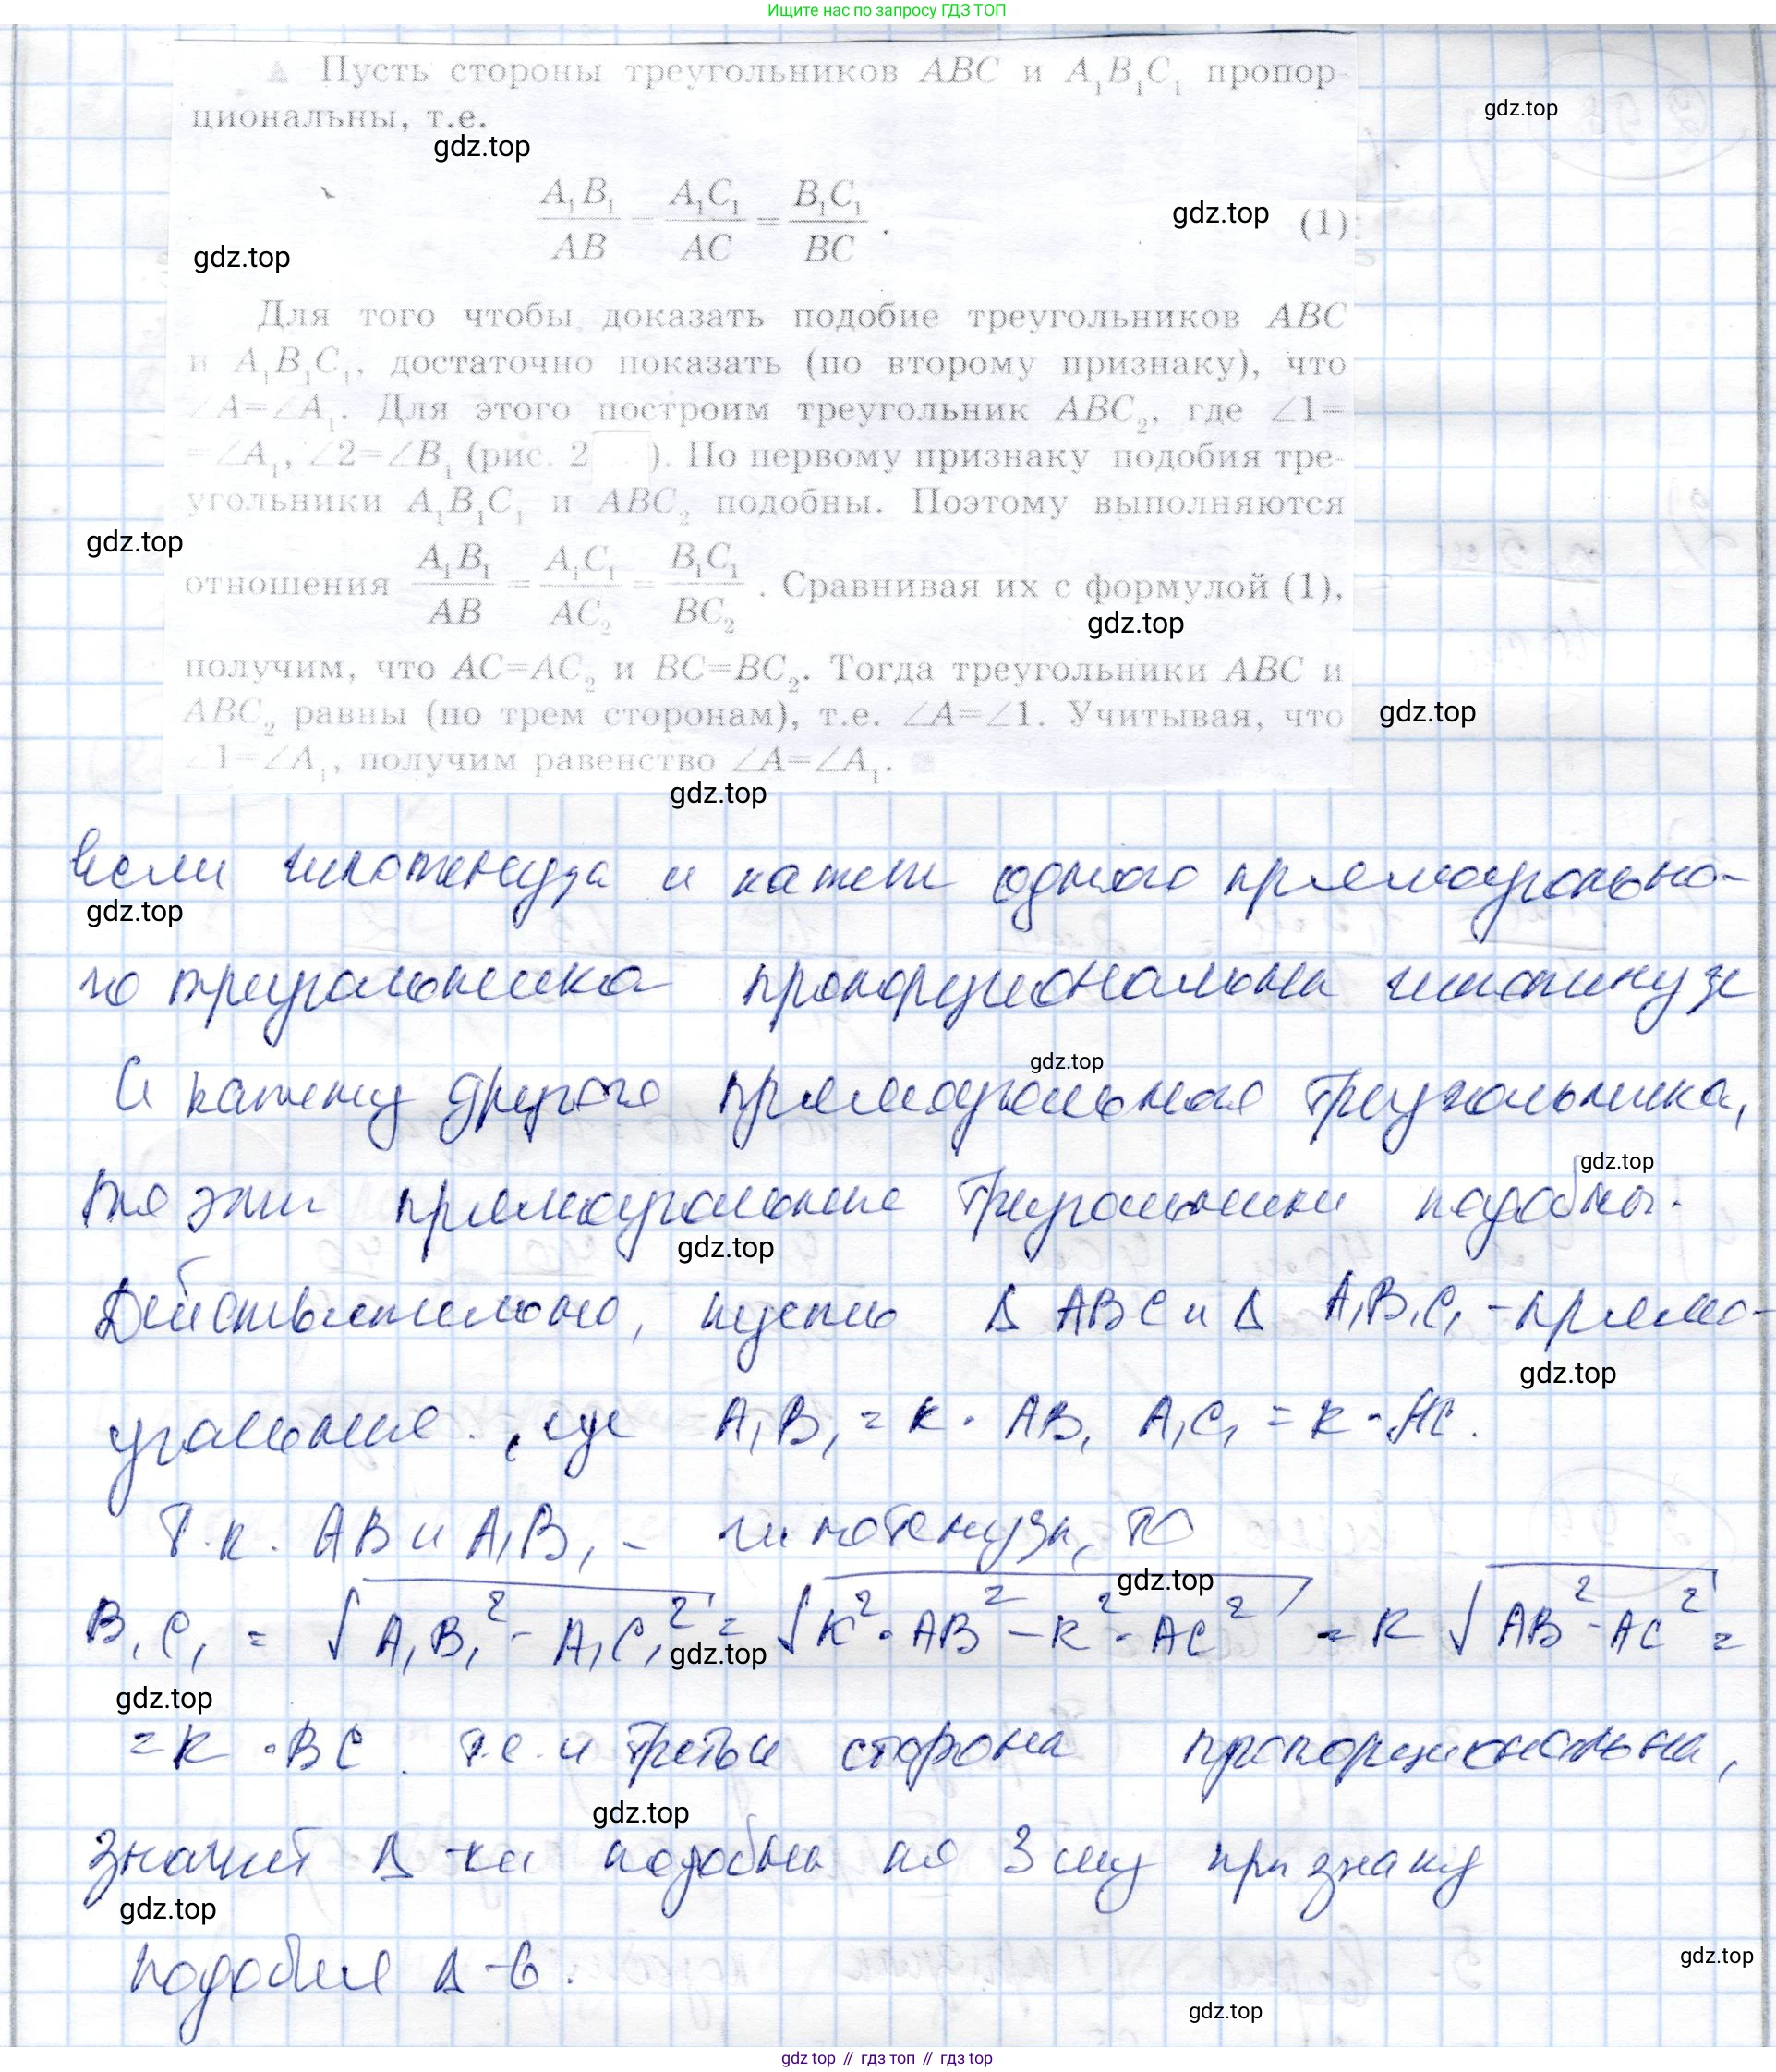 Ищите нас по запросу ГДЗ ТОП
Пусть стороны треугольников ABC и A₁B₁C₁ пропор-
циональны, т.е.
gdz.top
gdz.top
A₁B₁/AB = A₁C₁/AC = B₁C₁/BC. (1)
gdz.top
gdz.top
Для того чтобы доказать подобие треугольников ABC
и A₁B₁C₁, достаточно показать (по второму признаку), что
∠A=∠A₁. Для этого построим треугольник ABC₂, где ∠1=
=∠A₁, ∠2=∠B₁ (рис. 2 ). По первому признаку подобия тре-
угольники A₁B₁C₁ и ABC₂ подобны. Поэтому выполняются
gdz.top
отношения A₁B₁/AB = A₁C₁/AC₂ = B₁C₁/BC₂. Сравнивая их с формулой (1),
gdz.top
получим, что AC=AC₂ и BC=BC₂. Тогда треугольники ABC и
ABC₂ равны (по трем сторонам), т.е. ∠A=∠1. Учитывая, что
gdz.top
∠1=∠A₁, получим равенство ∠A=∠A₁.
gdz.top
Если гипотенуза и катет одного прямоугольно-
gdz.top
го треугольника пропорциональны гипотенузе
gdz.top
и катету другого прямоугольного треугольника,
gdz.top
то эти прямоугольные треугольники подобны.
gdz.top
Действительно, пусть Δ ABC и Δ A₁B₁C₁ - прямо-
gdz.top
угольные, где A₁B₁ = k · AB, A₁C₁ = k · AC.
Т.к. AB и A₁B₁ - гипотенузы, то
gdz.top
B₁C₁ = √(A₁B₁² - A₁C₁²) = √(k² · AB² - k² · AC²) = k √(AB² - AC²) =
gdz.top
gdz.top
= k · BC. т.е. и третья сторона пропорциональна,
gdz.top
значит Δ-ки подобны по 3 му признаку
gdz.top
подобия Δ-в.
gdz.top
gdz.top
gdz top // гдз топ // гдз top